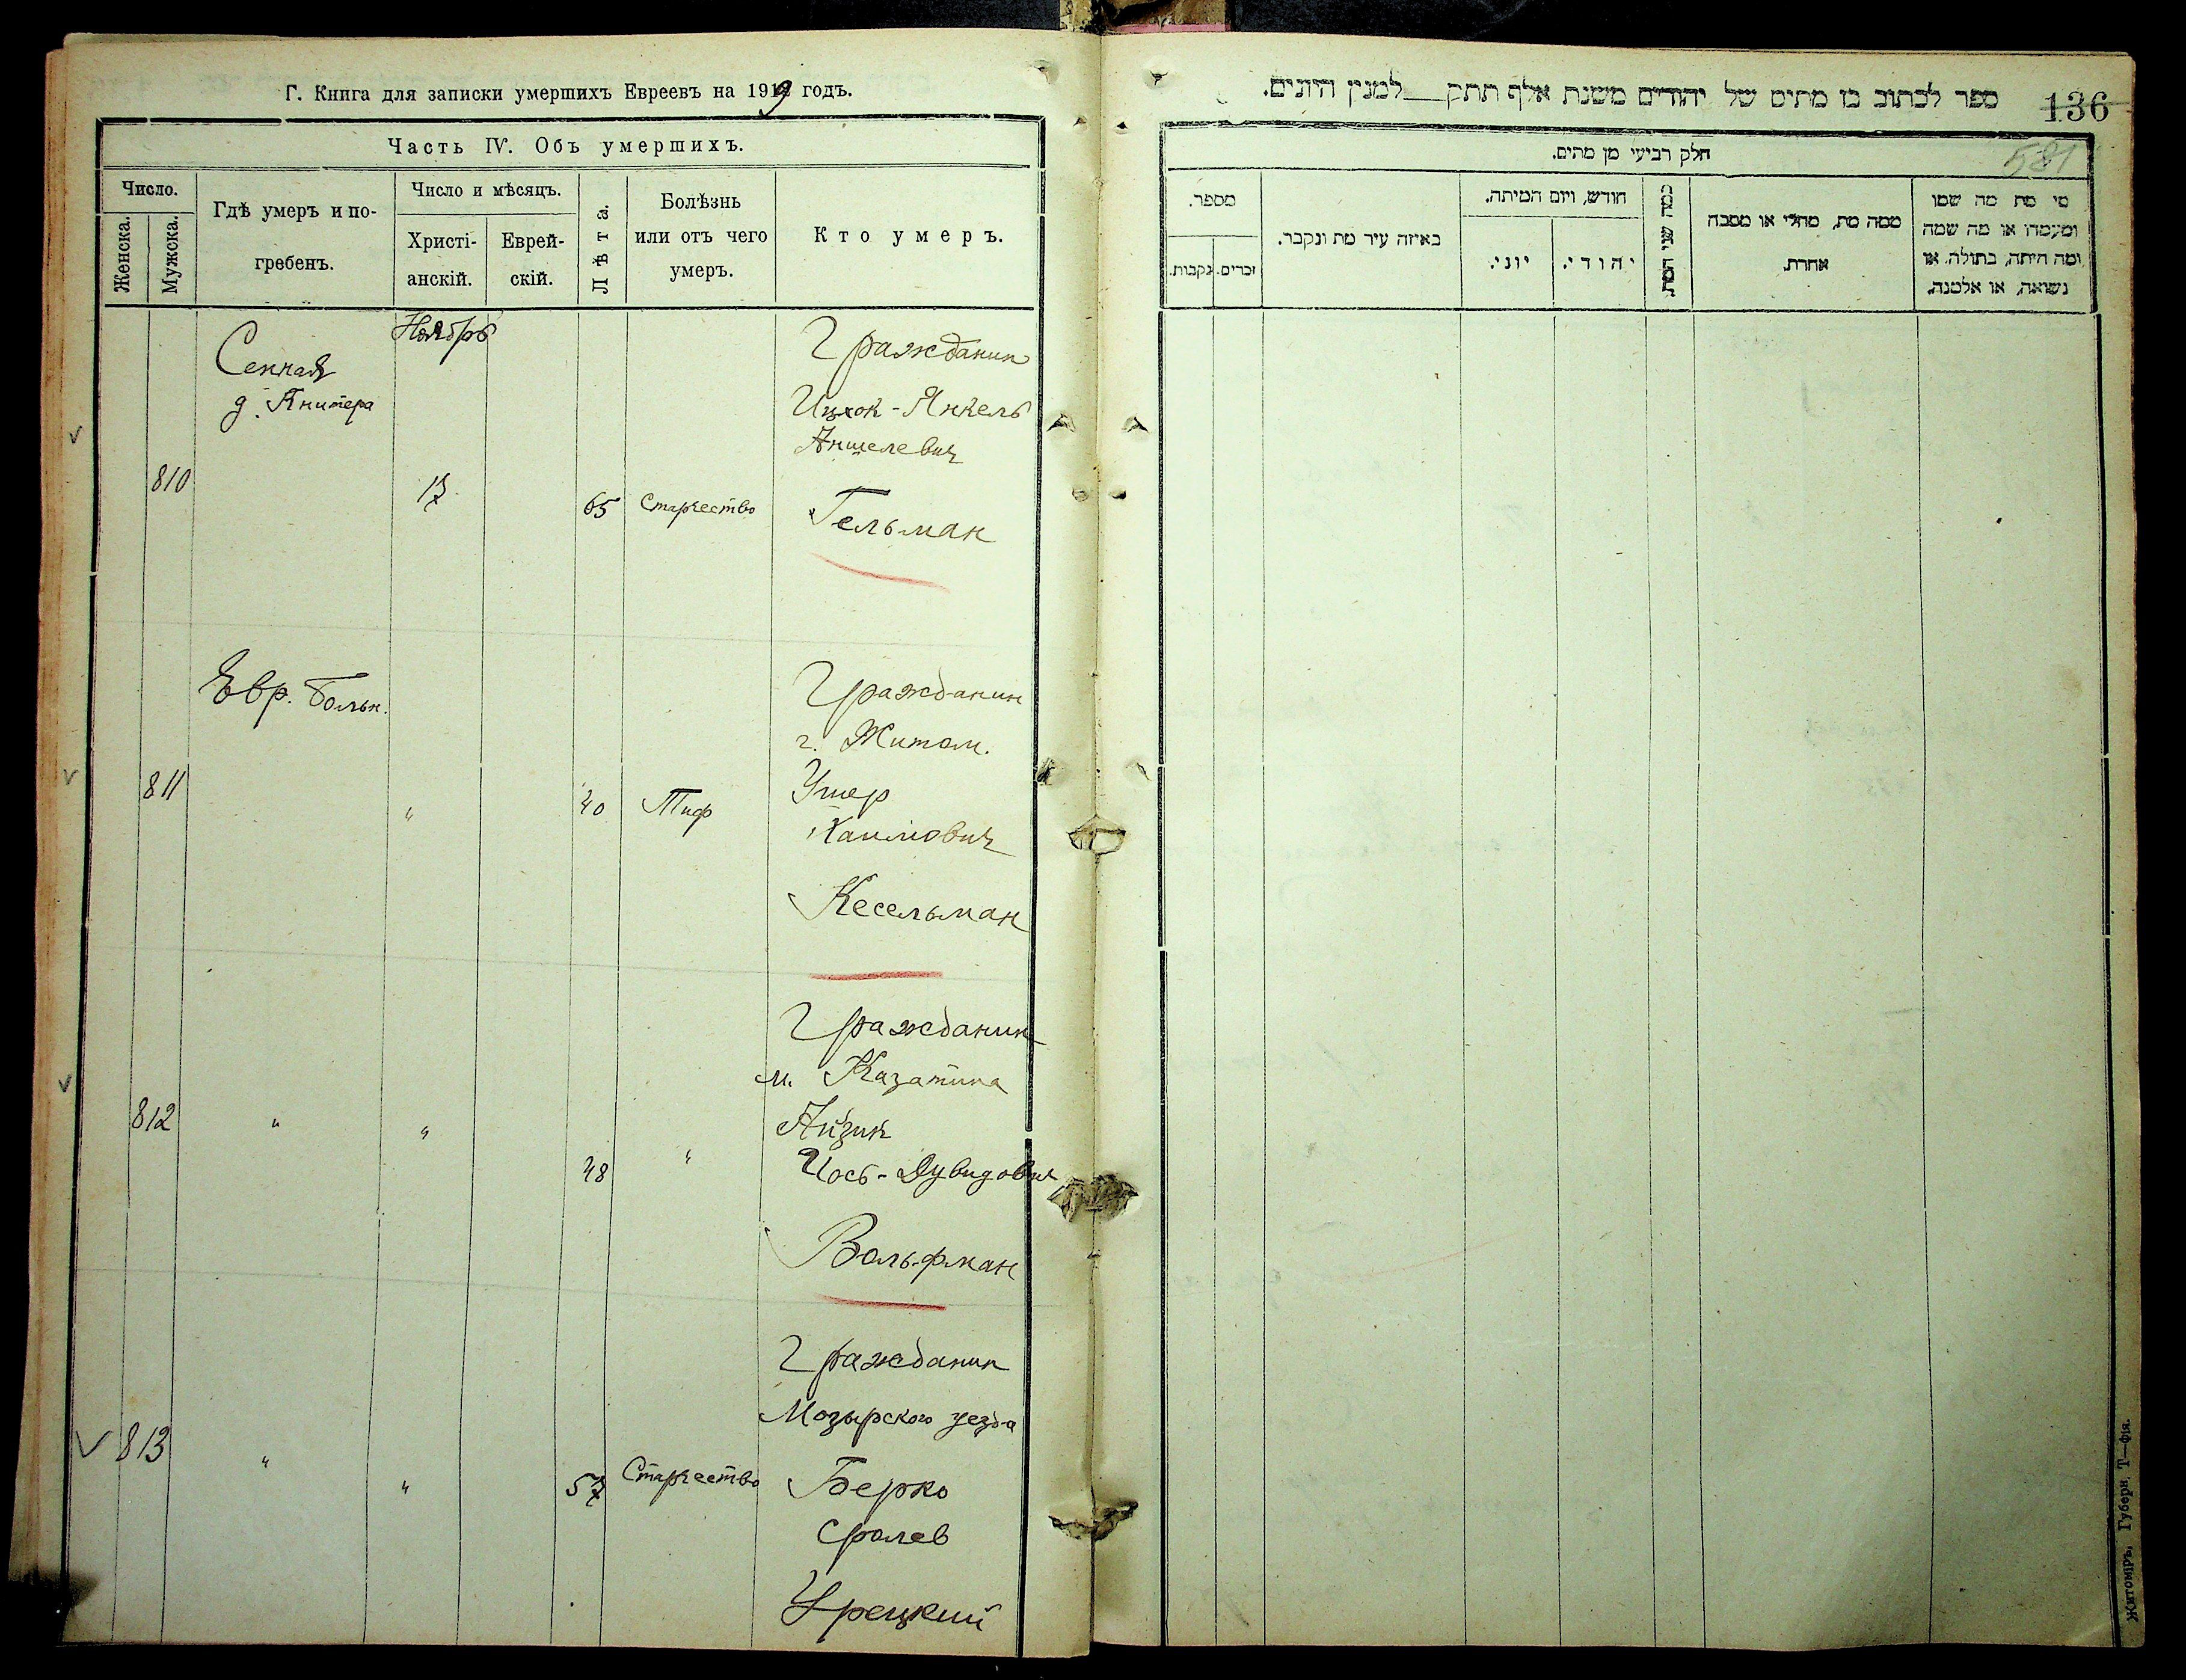 Г. Книга для записки умершихъ Евреевъ на 1919 годъ.
Часть IV. Объ умершихъ.
Число.
Женска.
Мужска.
Гдѣ умеръ и по-
гребенъ.
Число и мѣсяцъ.
Христі-
анскій.
Еврей-
скій.
Лѣта.
Болѣзнь
или отъ чего
умеръ.
Кто умеръ.
Ноябрь
Сенная
д. Книтера
810
17
65
Старчество
Гражданин
Ицхок-Янкель
Аншелевич
Гельман
Евр. больн.
811
"
40
Тиф
Гражданин
г. Житом.
Ушер
Хаимович
Кесельман
812
"
"
48
"
Гражданин
м. Казатина
Айзик
Иось-Дувидович
Вольфман
813
"
"
57
Старчество
Гражданин
Мозырского уезда
Берко
Сролев
Урецкий
ספר לכתוב בו מתים של יהודים משנת אלף תתק למנין היונים.
136
581
חלק רביעי מן מתים.
מספר.
נקבות.
זכרים.
באיזה עיר מת ונקבר.
חודש, ויום המיתה.
יוני.
יהודי.
כמה שני המת.
ממה מת, מחלי או מסבה
אחרת.
מי מת מה שמו
ומעמדו או מה שמה
ומה היתה, בתולה, או
נשואה, או אלמנה.
Житоміръ, Губерн. Т—фія.